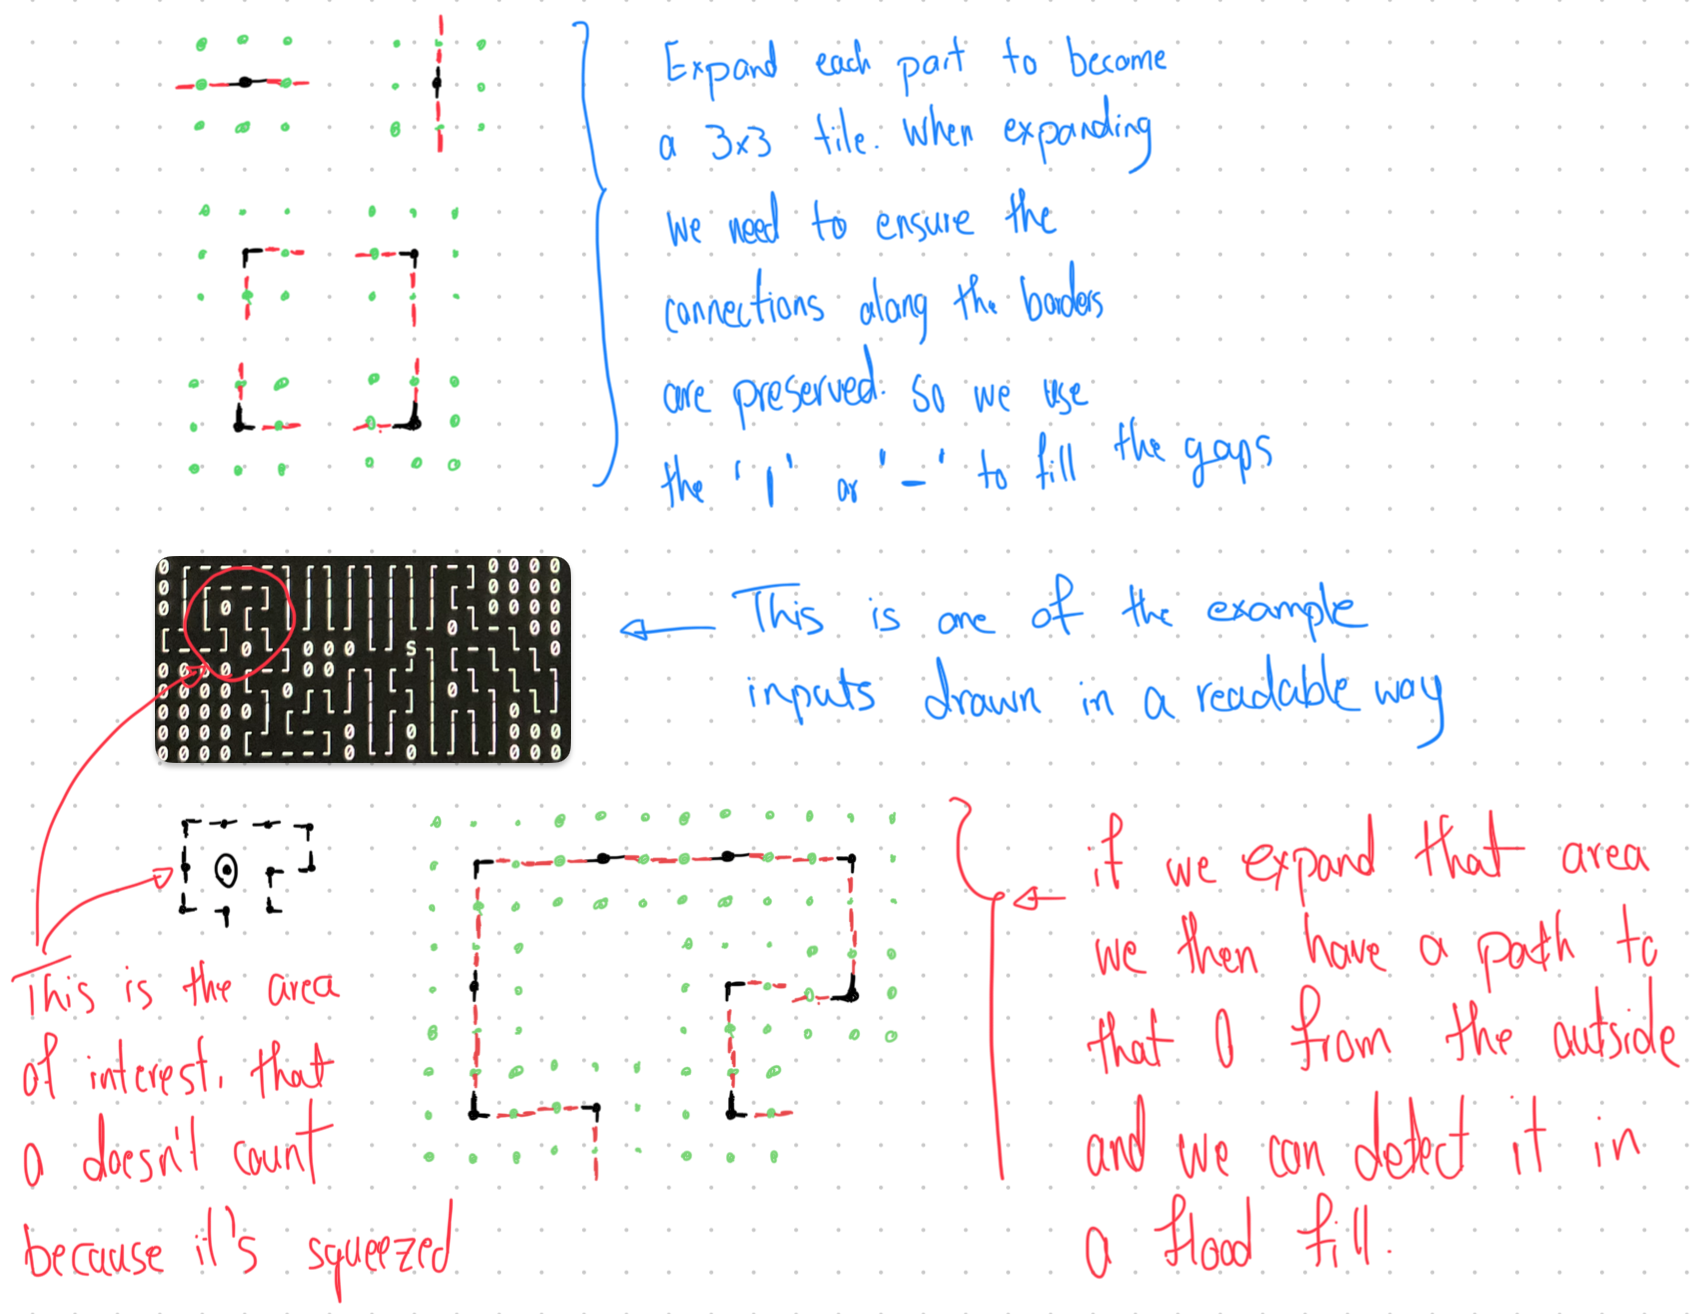 Expand each part to become
a 3x3 tile. When expanding
we need to ensure the
connections along the borders
are preserved. So we use
the '|' or '-' to fill the gaps
This is one of the example
inputs drawn in a readable way
This is the area
of interest, that
0 doesn't count
because it's squeezed
if we expand that area
we then have a path to
that 0 from the outside
and we can detect it in
a flood fill.